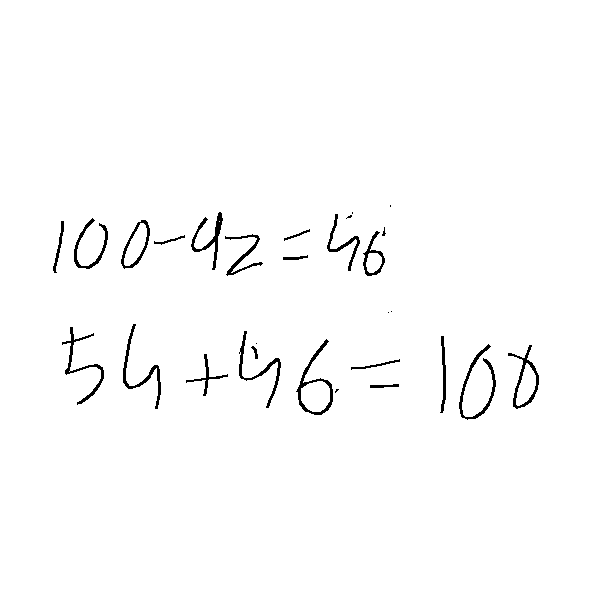 100-42=46
54+46=100